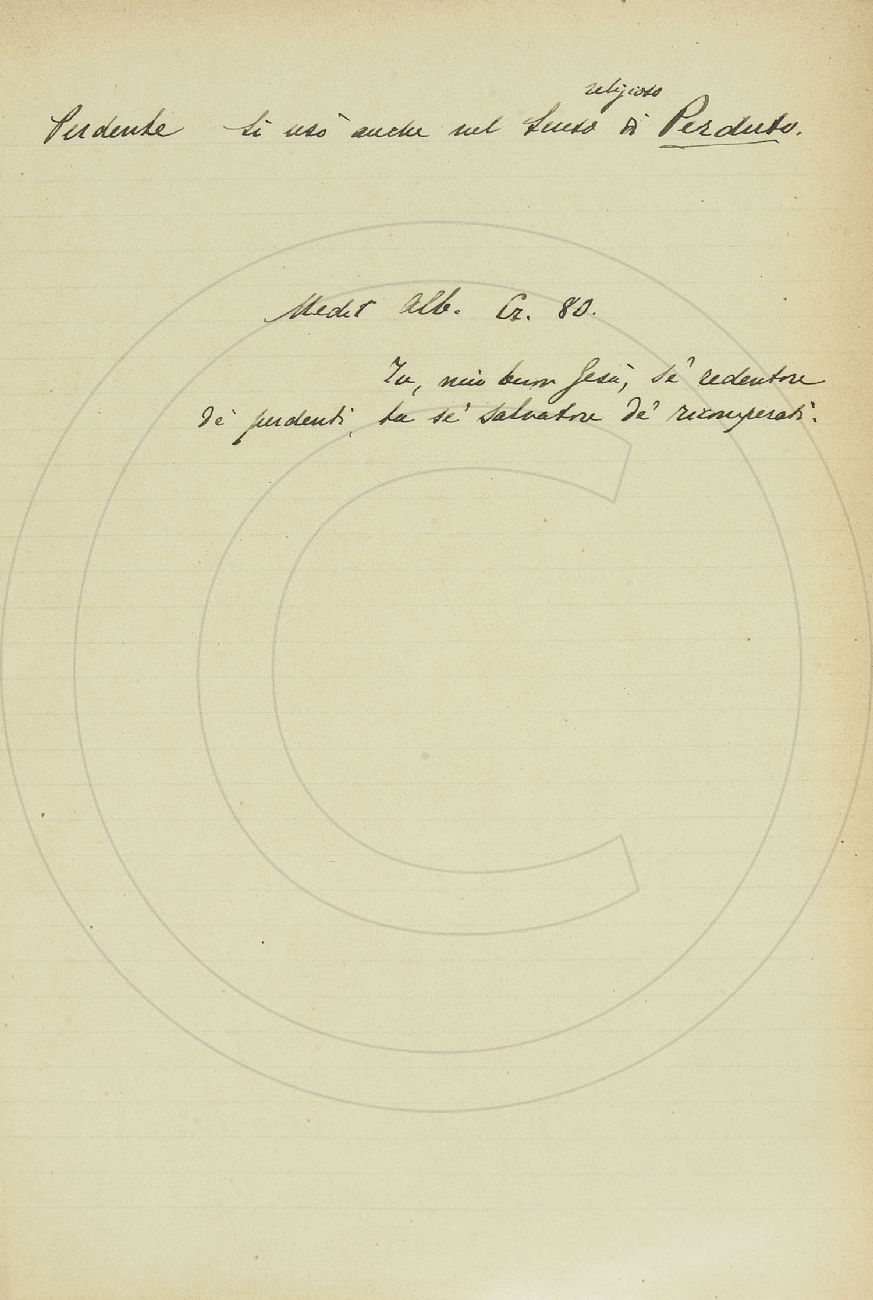 religioso
Perdente Si usò anche nel Senso di Perduto.
Medit Alb. Cr. 80.
Tu, mio buon Gesù, se' redentore
de' perdenti, tu se' salvatore de' ricomperati.